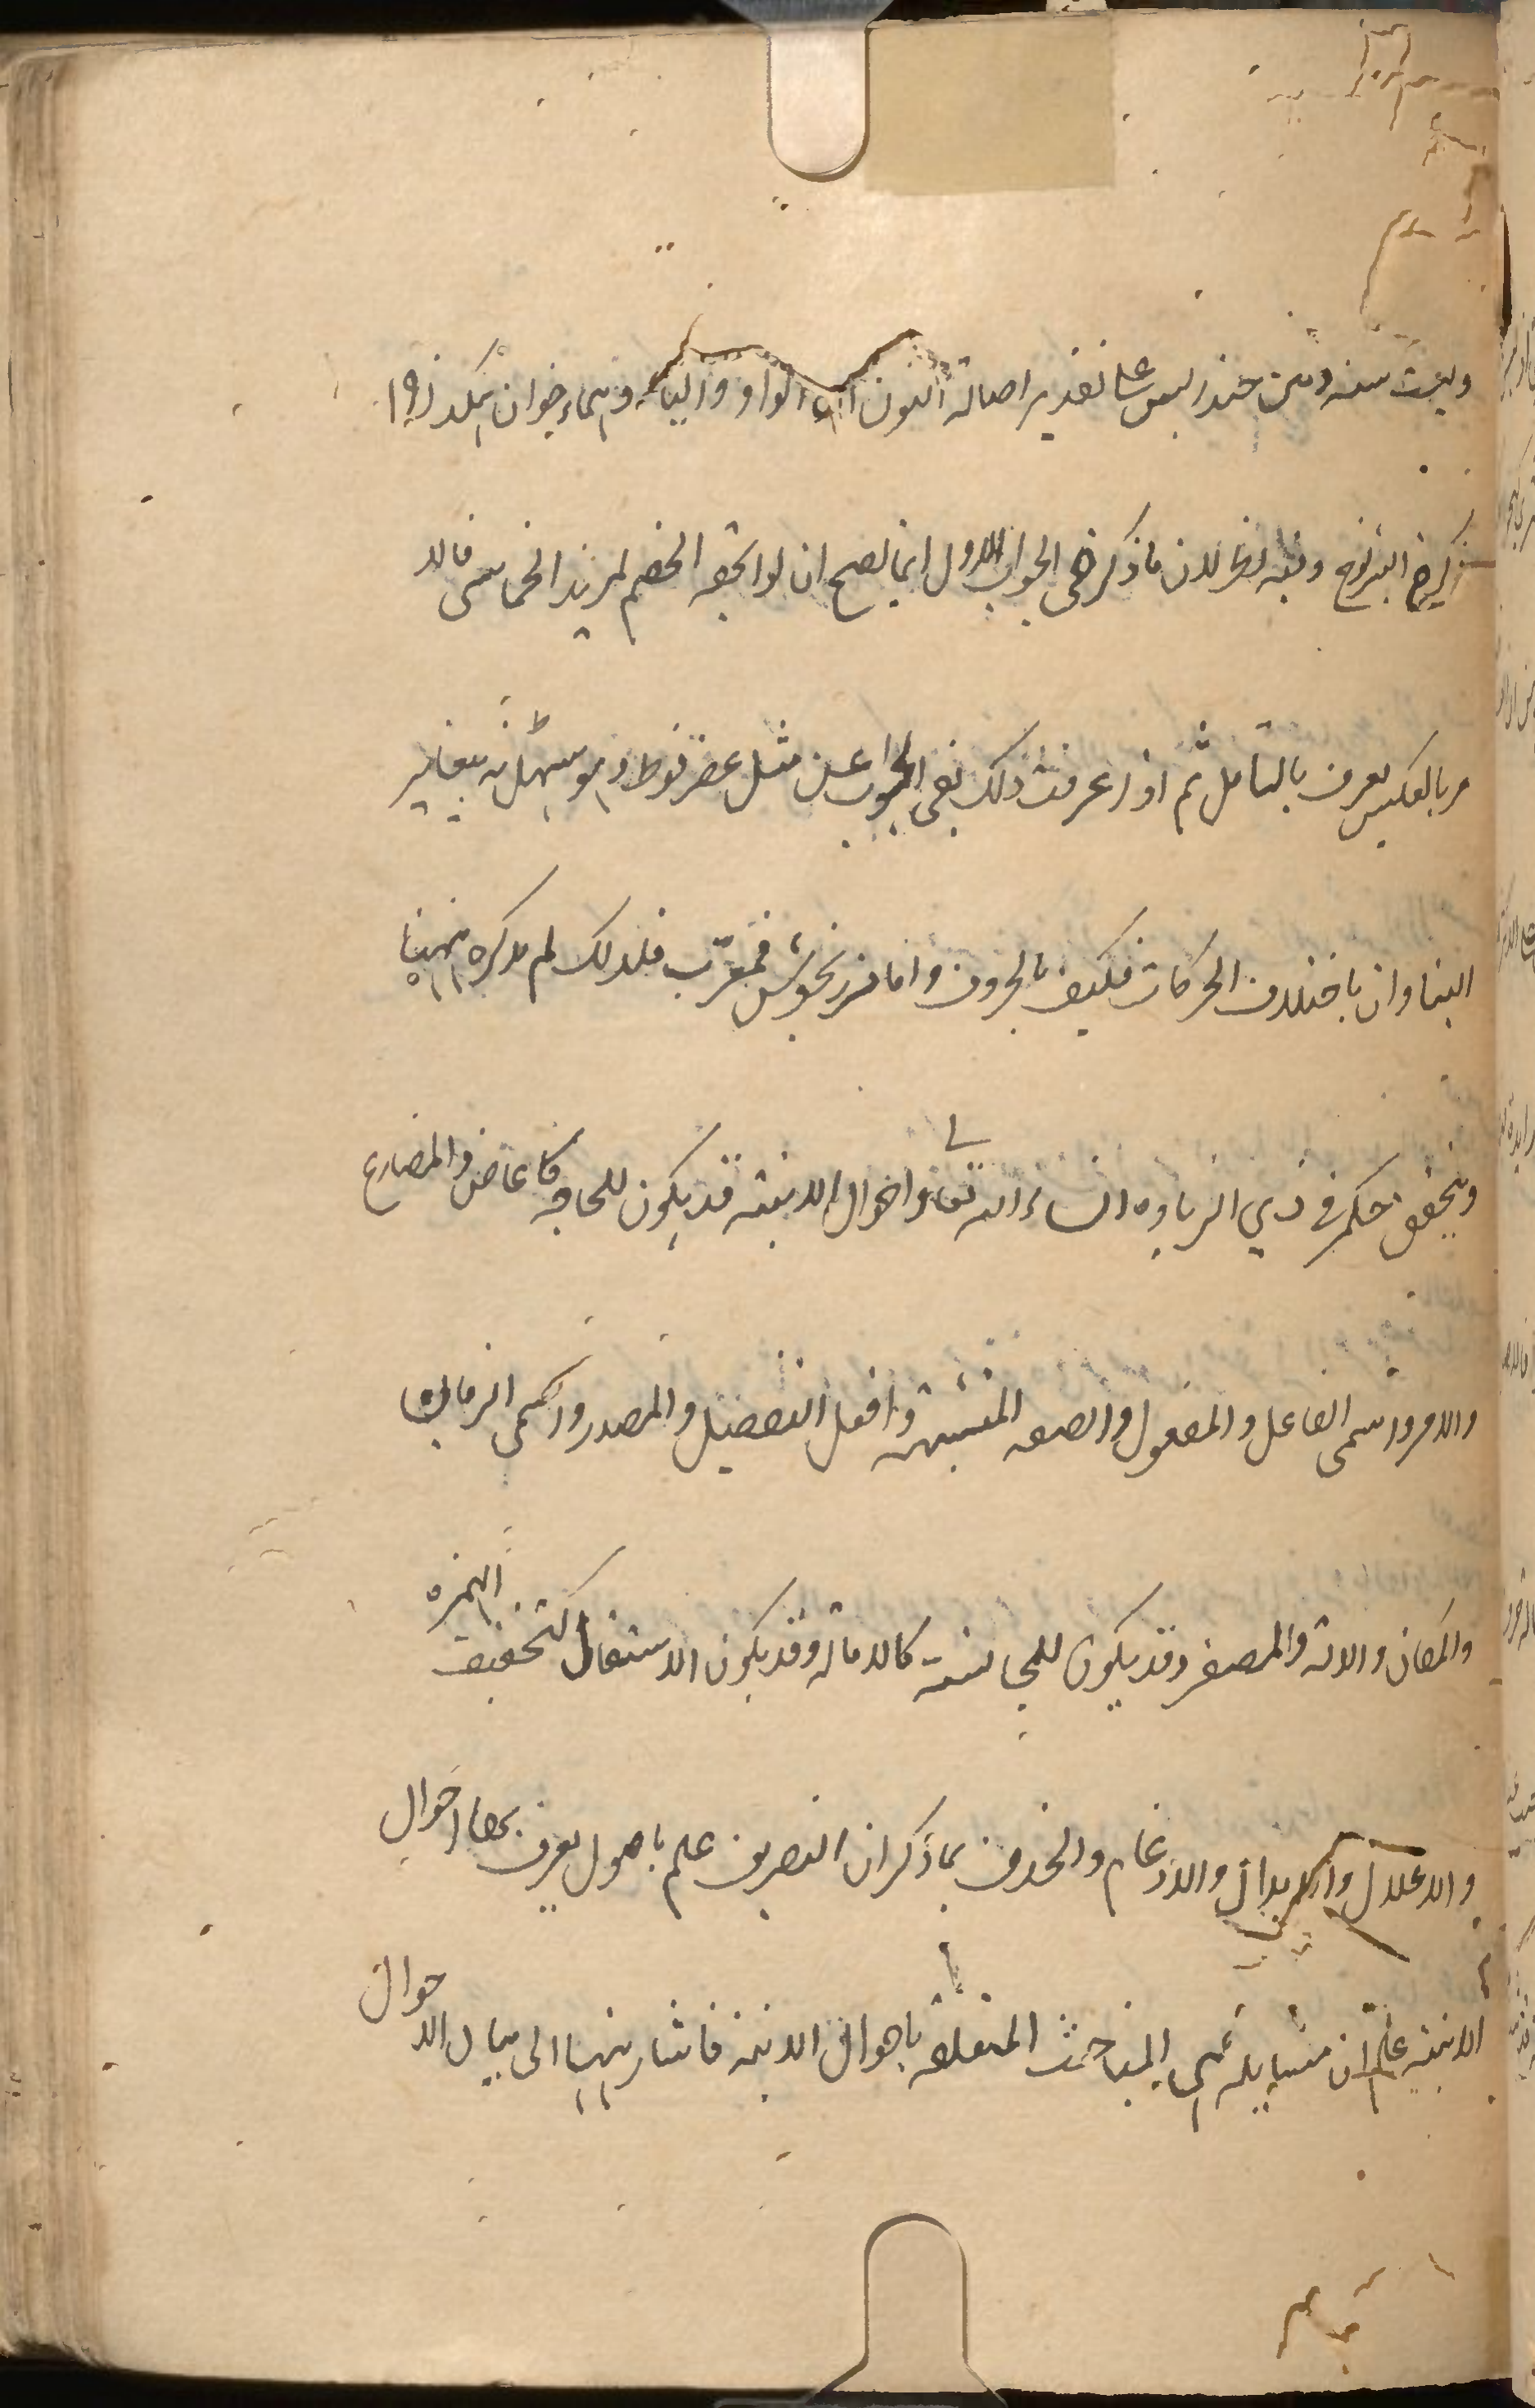 وليست منه ومن خندريس على تقدير اصالة النون الواو والياء وهما خوان هكذا
ذكر في الشروح وفيه نظر لان ما ذكر في الجواب الاول انما يصح ان لو الحقه الخصم لمزيد الخماسي فالا
مر بالعكس يعرف بالتامل ثم اذا عرفت ذلك بقى الجواب عن مثل عضرفوط وهو سهل لانه يتغاير
البناوان باختلاف الحركات فكيف بالحروف واما مرزنجوش فمعرّب فلذلك لم يذكره ههنا
ويتحقق حكم في ذي الزيادة ان شاء الله تعالى واحوال الابنية قد يكون للحاجة كالماضي والمضارع
والامر واسمى الفاعل والمفعول والصفه المشبهة وافعل التفضيل والمصدر واسمى الزمان
والمكان والالة والمصغر وقد يكون للمجانسة كالامالة وقد يكون الاستثقال كتخفيف الهمزه
والاعلال والابدال والادغام والحذف بما ذكر ان التصريف علم باصول يعرف بها احوال
الابنية علم ان مسايله هى المباحث المتعلقة باحوال الابنية فاشار ههنا الى بيان الاحوال